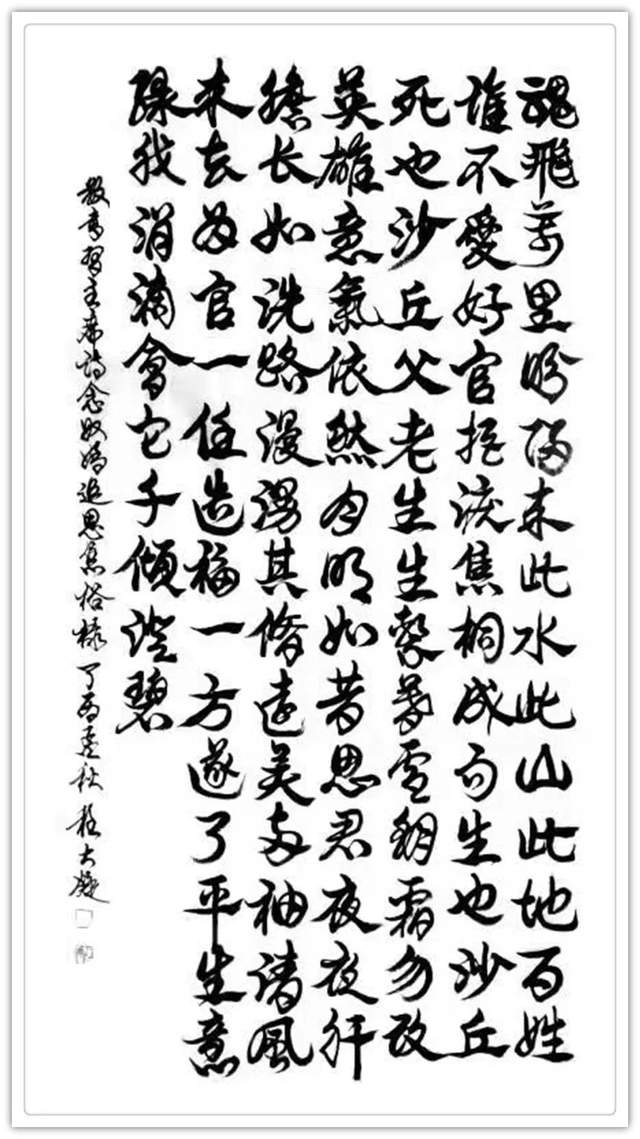 魂飛萬里盼歸来此水此山此地百姓
誰不愛好官把淚焦桐成雨生也沙丘
死也沙丘父老生生繫暮雪朝霜勿改
英雄意氣依然月明如昔思君夜夜肝
膽长如洗路漫漫其脩遠矣两袖清風
来去为官一任造福一方遂了平生意
緑我涓滴會它千傾澄碧
敬書習主席詩念奴嬌追思焦裕禄 丁酉孟秋